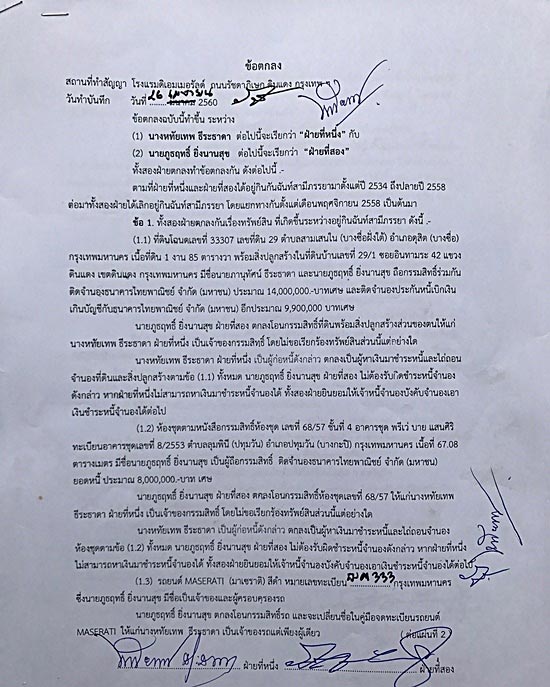 ข้อตกลง
สถานที่ทำสัญญา โรงแรมดิเอมเมอรัลด์ ถนนรัชดาภิเษก ดินแดง กรุงเทพฯ
วันทำบันทึก วันที่ 26 เมษายน มีนาคม 2560
ข้อตกลงฉบับนี้ทำขึ้น ระหว่าง
(1) นางหทัยเทพ ธีระธาดา ต่อไปนี้จะเรียกว่า "ฝ่ายที่หนึ่ง" กับ
(2) นายภูธฤทธิ์ ยิ่งนานสุข ต่อไปนี้จะเรียกว่า "ฝ่ายที่สอง"
ทั้งสองฝ่ายตกลงทำข้อตกลงกัน ดังต่อไปนี้ .-
ตามที่ฝ่ายที่หนึ่งและฝ่ายที่สองได้อยู่กินกันฉันท์สามีภรรยามาตั้งแต่ปี 2534 ถึงปลายปี 2558
ต่อมาทั้งสองฝ่ายได้เลิกอยู่กินฉันท์สามีภรรยา โดยแยกทางกันตั้งแต่เดือนพฤศจิกายน 2558 เป็นต้นมา
ข้อ 1. ทั้งสองฝ่ายตกลงกันเรื่องทรัพย์สิน ที่เกิดขึ้นระหว่างอยู่กินฉันท์สามีภรรยา ดังนี้ .-
(1.1) ที่ดินโฉนดเลขที่ 33307 เลขที่ดิน 29 ตำบลสามเสนใน (บางซื่อฝั่งใต้) อำเภอดุสิต (บางซื่อ)
กรุงเทพมหานคร เนื้อที่ดิน 1 งาน 85 ตารางวา พร้อมสิ่งปลูกสร้างในที่ดินบ้านเลขที่ 29/1 ซอยอินทามระ 42 แขวง
ดินแดง เขตดินแดง กรุงเทพมหานคร มีชื่อนายภานุทัศน์ ธีระธาดา และนายภูธฤทธิ์ ยิ่งนานสุข ถือกรรมสิทธิ์ร่วมกัน
ติดจำนองธนาคารไทยพาณิชย์ จำกัด (มหาชน) ประมาณ 14,000,000.-บาทเศษ และติดจำนองประกันหนี้เบิกเงิน
เกินบัญชีกับธนาคารไทยพาณิชย์ จำกัด (มหาชน) อีกประมาณ 9,900,000 บาทเศษ
นายภูธฤทธิ์ ยิ่งนานสุข ฝ่ายที่สอง ตกลงโอนกรรมสิทธิ์ที่ดินพร้อมสิ่งปลูกสร้างส่วนของตนให้แก่
นางหทัยเทพ ธีระธาดา ฝ่ายที่หนึ่ง เป็นเจ้าของกรรมสิทธิ์ โดยไม่ขอเรียกร้องทรัพย์สินส่วนนี้แต่อย่างใด
นางหทัยเทพ ธีระธาดา ฝ่ายที่หนึ่ง เป็นผู้ก่อหนี้ดังกล่าว ตกลงเป็นผู้หาเงินมาชำระหนี้และไถ่ถอน
จำนองที่ดินและสิ่งปลูกสร้างตามข้อ (1.1) ทั้งหมด นายภูธฤทธิ์ ยิ่งนานสุข ฝ่ายที่สอง ไม่ต้องรับผิดชำระหนี้จำนอง
ดังกล่าว หากฝ่ายที่หนึ่งไม่สามารถหาเงินมาชำระหนี้จำนองได้ ทั้งสองฝ่ายยินยอมให้เจ้าหนี้จำนองบังคับจำนองเอา
เงินชำระหนี้จำนองได้ต่อไป
(1.2) ห้องชุดตามหนังสือกรรมสิทธิ์ห้องชุด เลขที่ 68/57 ชั้นที่ 4 อาคารชุด พรีเว่ บาย แสนศิริ
ทะเบียนอาคารชุดเลขที่ 8/2553 ตำบลลุมพินี (ปทุมวัน) อำเภอปทุมวัน (บางกะปิ) กรุงเทพมหานคร เนื้อที่ 67.08
ตารางเมตร มีชื่อนายภูธฤทธิ์ ยิ่งนานสุข เป็นผู้ถือกรรมสิทธิ์ ติดจำนองธนาคารไทยพาณิชย์ จำกัด (มหาชน)
ยอดหนี้ ประมาณ 8,000,000.-บาท เศษ
นายภูธฤทธิ์ ยิ่งนานสุข ฝ่ายที่สอง ตกลงโอนกรรมสิทธิ์ห้องชุดเลขที่ 68/57 ให้แก่นางหทัยเทพ
ธีระธาดา ฝ่ายที่หนึ่ง เป็นเจ้าของกรรมสิทธิ์ โดยไม่ขอเรียกร้องทรัพย์สินส่วนนี้แต่อย่างใด
นางหทัยเทพ ธีระธาดา ฝ่ายที่หนึ่ง เป็นผู้ก่อหนี้ดังกล่าว ตกลงเป็นผู้หาเงินมาชำระหนี้และไถ่ถอนจำนอง
ห้องชุดตามข้อ (1.2) ทั้งหมด นายภูธฤทธิ์ ยิ่งนานสุข ฝ่ายที่สอง ไม่ต้องรับผิดชำระหนี้จำนองดังกล่าว หากฝ่ายที่หนึ่ง
ไม่สามารถหาเงินมาชำระหนี้จำนองได้ ทั้งสองฝ่ายยินยอมให้เจ้าหนี้จำนองบังคับจำนองเอาเงินชำระหนี้จำนองได้ต่อไป
(1.3) รถยนต์ MASERATI (มาเซราติ) สีดำ หมายเลขทะเบียน 333 กรุงเทพมหานคร
ซึ่งนายภูธฤทธิ์ ยิ่งนานสุข มีชื่อเป็นเจ้าของและผู้ครอบครองรถ
นายภูธฤทธิ์ ยิ่งนานสุข ตกลงโอนกรรมสิทธิ์รถ และจะเปลี่ยนชื่อในคู่มือจดทะเบียนรถยนต์
MASERATI ให้แก่นางหทัยเทพ ธีระธาดา เป็นเจ้าของรถแต่เพียงผู้เดียว (ต่อแผ่นที่ 2)
ฝ่ายที่หนึ่ง ฝ่ายที่สอง